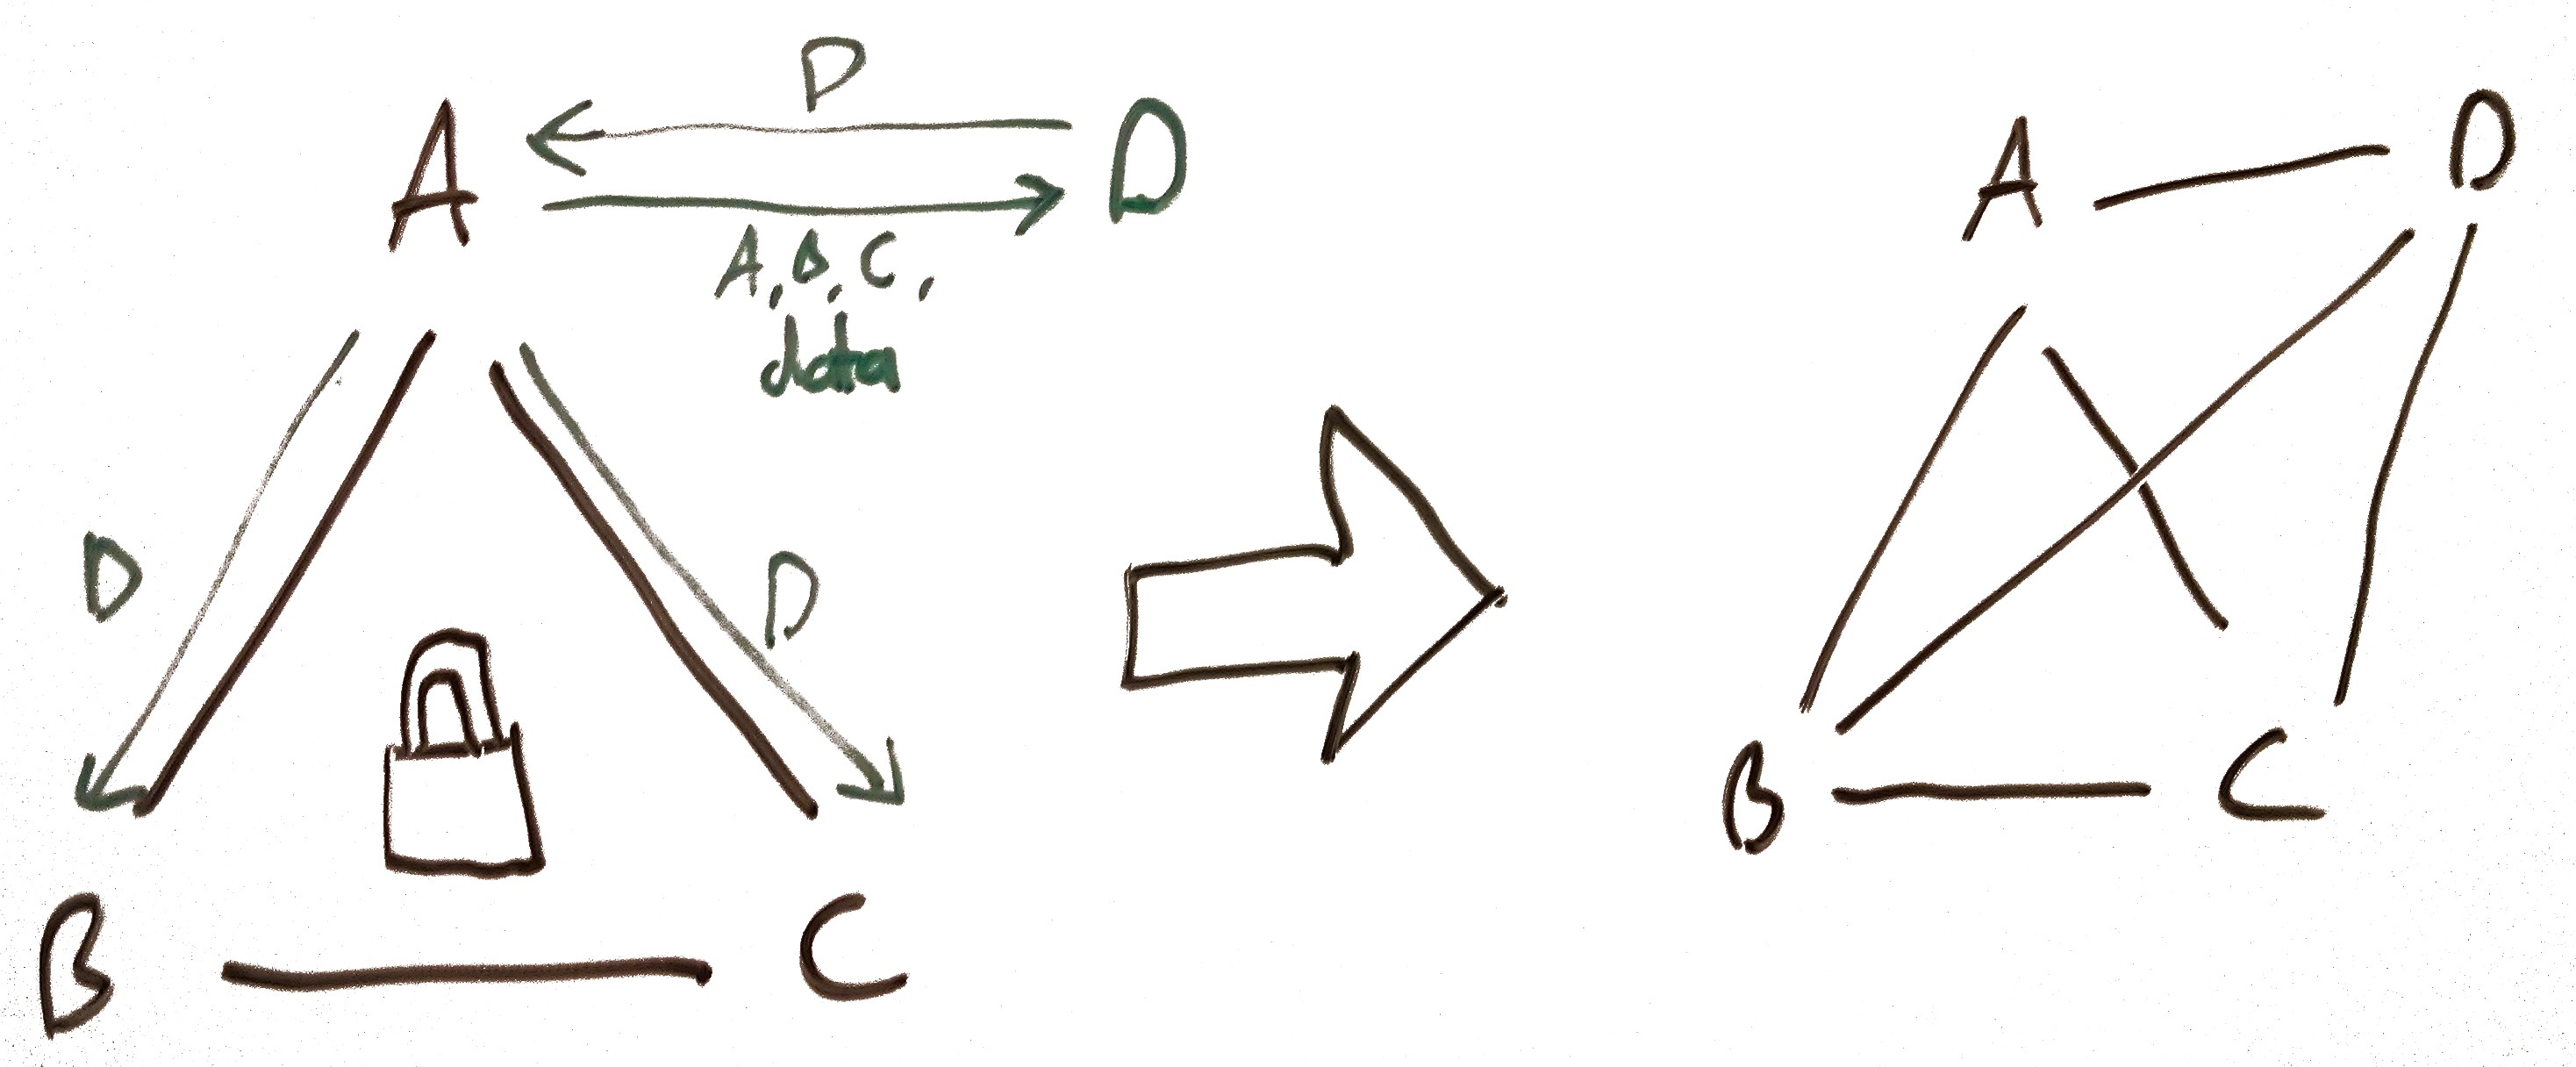 D
A D
A, B, C,
data
D D
B C
A D
B C